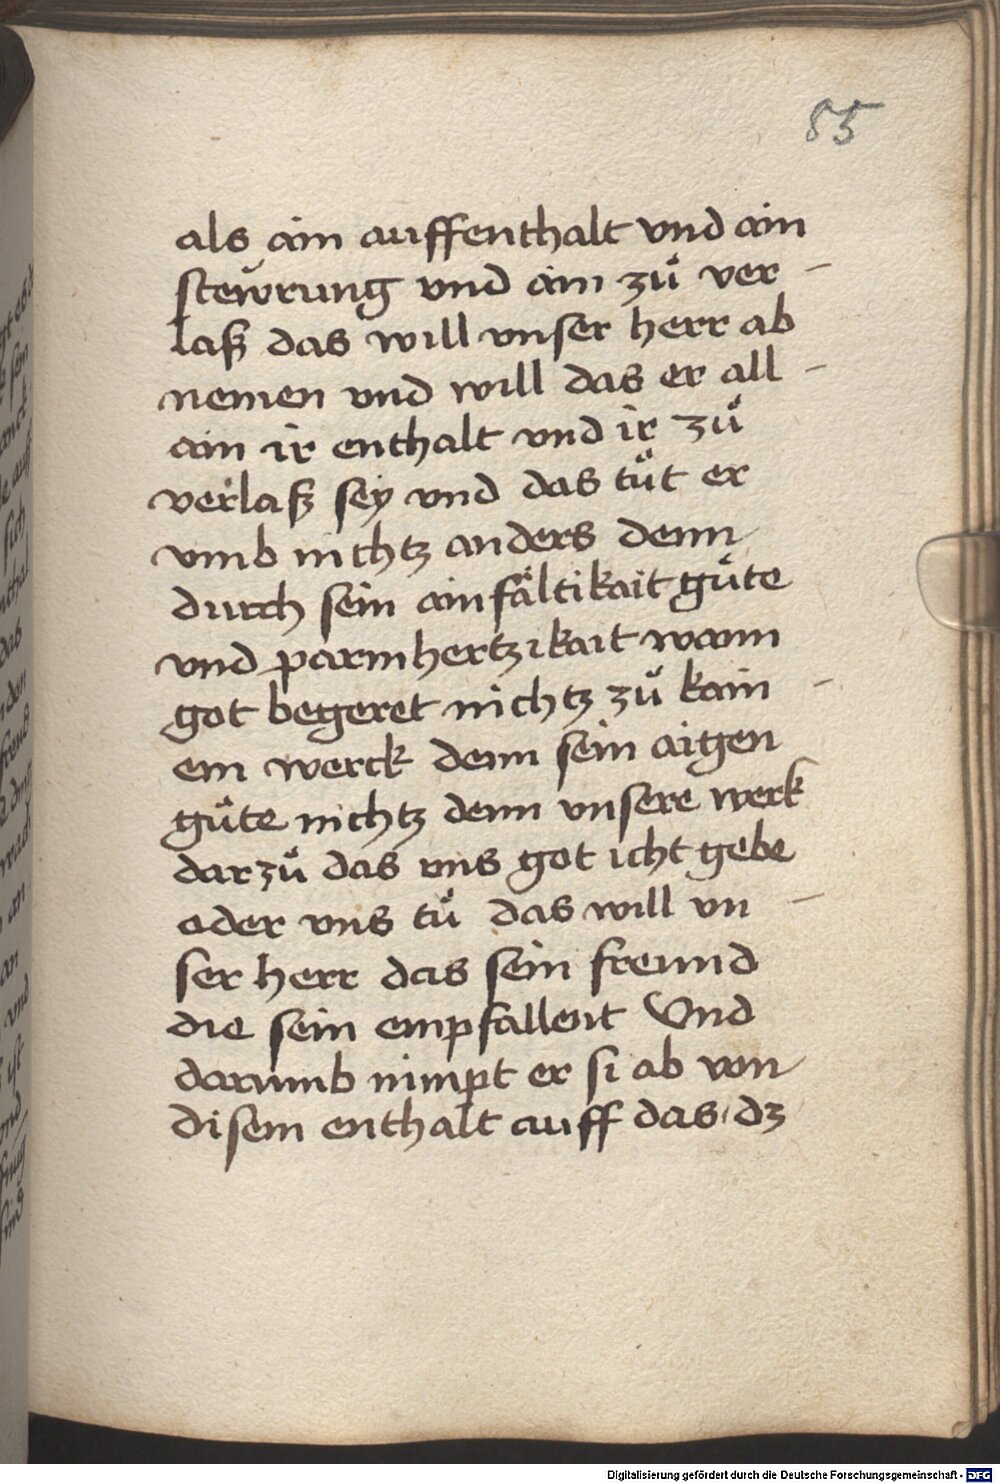 85
als ain auffenthalt vnd ain
stewrung vnd ain zů ver –
laß das will vnser herr ab
nemen vnd will das er all –
ain ir enthalt vnd ir zů
verlaß sey vnd das tůt er
vmb nichtz anders denn
durch sein ainfåltikait gůte
vnd parmhertzikait wann
got begeret nichtz zů kain –
em werck denn sein aigen
gůte nichtz denn vnsere werk
darzů das vns got icht gebe
oder vns tů das will vn –
ser herr das sein freund
die sein empfallent Vnd
darumb nimpt er si ab von
disem enthalt auff das dz
Digitalisierung gefördert durch die Deutsche Forschungsgemeinschaft - DFG